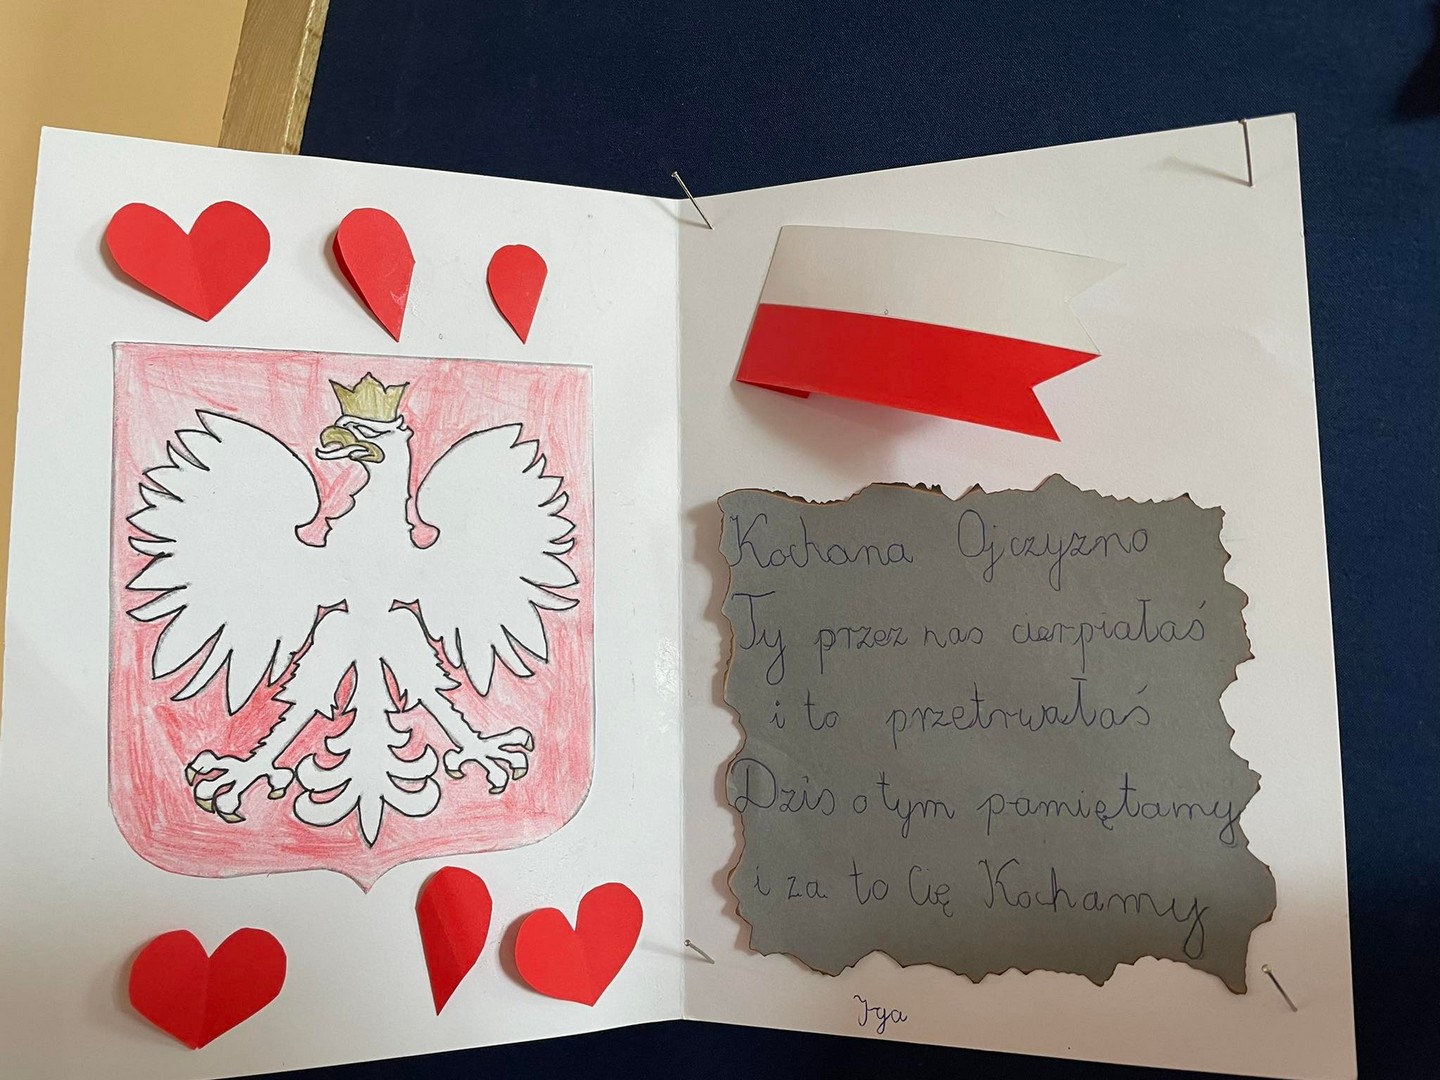 Kochana Ojczyzno
Ty przez nas cierpiałaś
i to przetrwałaś
Dziś o tym pamiętamy
i za to Cię Kochamy
Iga